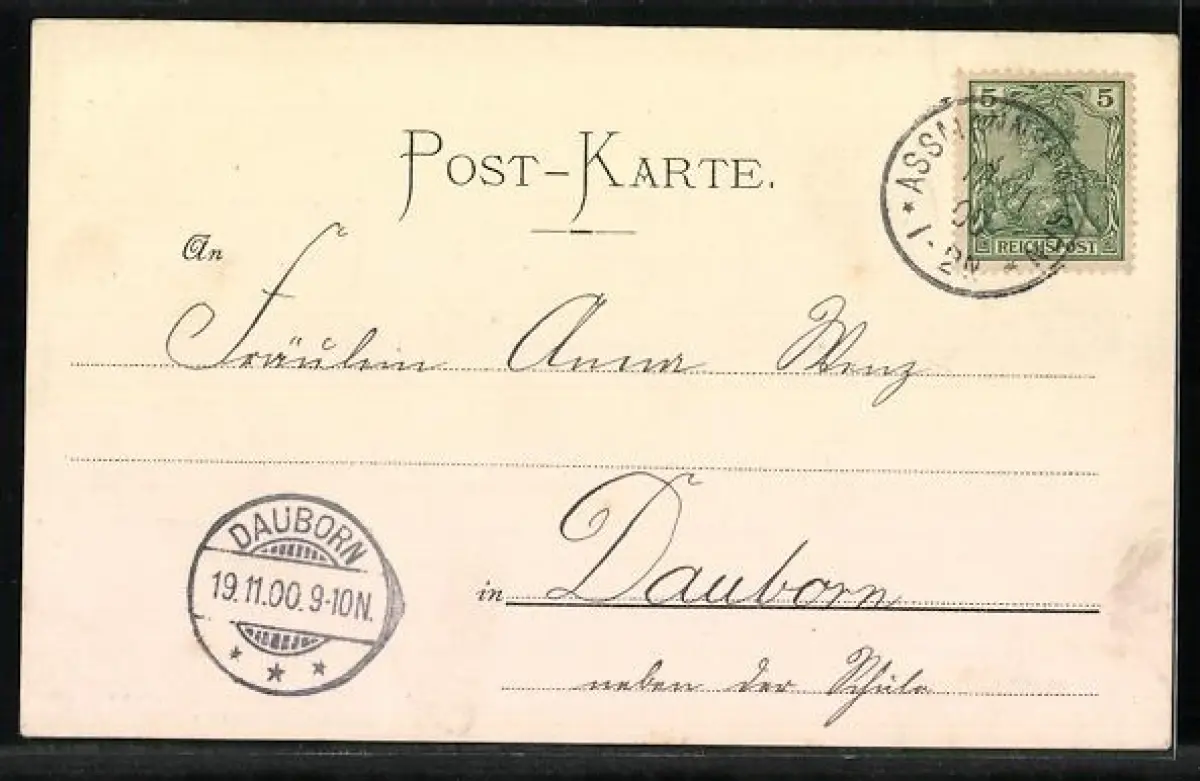 POST-KARTE.
5 5
REICHSPOST
1-2N
An
Fräulein Anna Wenz
DAUBORN
19.11.00. 9-10N.
in Dauborn
neben der Schule